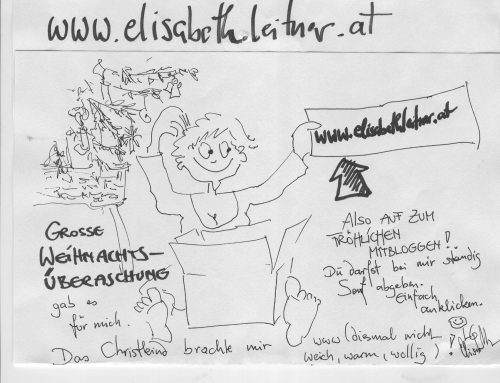 www.elisabeth.leitner.at
www.elisabethleitner.at
GROSSE
WEIHNACHTS-
ÜBERASCHUNG
gab es
für mich.
ALSO AUF ZUM
FRÖHLICHEN
MITBLOGGEN!
Du darfst bei mir ständig
Senf abgeben.
Einfach
anklicken.
Das Christkind brachte mir
www (diesmal nicht
weich, warm, wollig)!